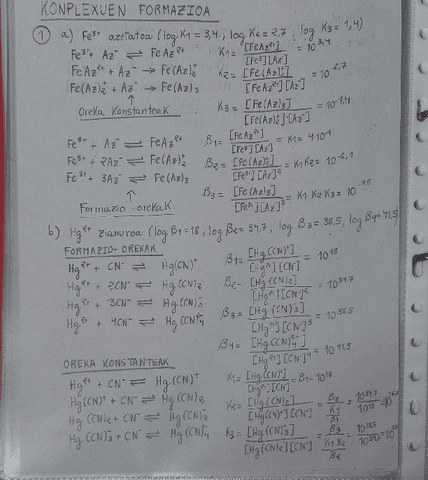 KONPLEXUEN FORMAZIOA
① a) Fe³⁺ azetatoa (log K₁ = 3,4; log K₂ = 2,7; log K₃ = 1,4)
Fe³⁺ + Az⁻ ⇌ FeAz²⁺ K₁ = [FeAz²⁺] / [Fe³⁺][Az⁻] = 10^3,4
FeAz²⁺ + Az⁻ → Fe(Az)₂⁺ K₂ = [Fe(Az)₂⁺] / [FeAz²⁺][Az⁻] = 10^-2,7
Fe(Az)₂⁺ + Az⁻ → Fe(Az)₃ K₃ = [Fe(Az)₃] / [Fe(Az)₂⁺][Az⁻] = 10^-1,4
↑
Oreka Konstanteak
Fe³⁺ + Az⁻ ⇌ FeAz²⁺ β₁ = [FeAz²⁺] / [Fe³⁺][Az⁻] = K₁ =
Fe³⁺ + 2Az⁻ ⇌ Fe(Az)₂⁺ β₂ = [Fe(Az)₂⁺] / [Fe³⁺][Az⁻]² = K₁K₂ = 10^-6,1
Fe³⁺ + 3Az⁻ ⇌ Fe(Az)₃ β₃ = [Fe(Az)₃] / [Fe³⁺][Az⁻]³ = K₁K₂K₃ =
↑
Formazio-orekak
b) Hg²⁺ zianuroa (log β₁ = 18; log β₂ = 34,7; log β₃ = 38,5; log β₄ = 41,5)
FORMAZIO-OREKAK
Hg²⁺ + CN⁻ ⇌ Hg(CN)⁺ β₁ = [Hg(CN)⁺] / [Hg²⁺][CN⁻] = 10^18
Hg²⁺ + 2CN⁻ ⇌ Hg(CN)₂ β₂ = [Hg(CN)₂] / [Hg²⁺][CN⁻]² = 10^34,7
Hg²⁺ + 3CN⁻ ⇌ Hg(CN)₃⁻ β₃ = [Hg(CN)₃⁻] / [Hg²⁺][CN⁻]³ = 10^38,5
Hg²⁺ + 4CN⁻ ⇌ Hg(CN)₄²⁻ β₄ = [Hg(CN)₄²⁻] / [Hg²⁺][CN⁻]⁴ = 10^41,5
OREKA KONSTANTEAK
Hg²⁺ + CN⁻ ⇌ Hg(CN)⁺ K₁ = [Hg(CN)⁺] / [Hg²⁺][CN⁻] = β₁ = 10^18
Hg(CN)⁺ + CN⁻ ⇌ Hg(CN)₂ K₂ = [Hg(CN)₂] / [Hg(CN)⁺][CN⁻] = β₂ / K₁ = 10^34,7 / 10^18
Hg(CN)₂ + CN⁻ ⇌ Hg(CN)₃⁻ K₃ = [Hg(CN)₃⁻] / [Hg(CN)₂][CN⁻] = β₃ / K₁K₂
Hg(CN)₃⁻ + CN⁻ ⇌ Hg(CN)₄²⁻ β₂